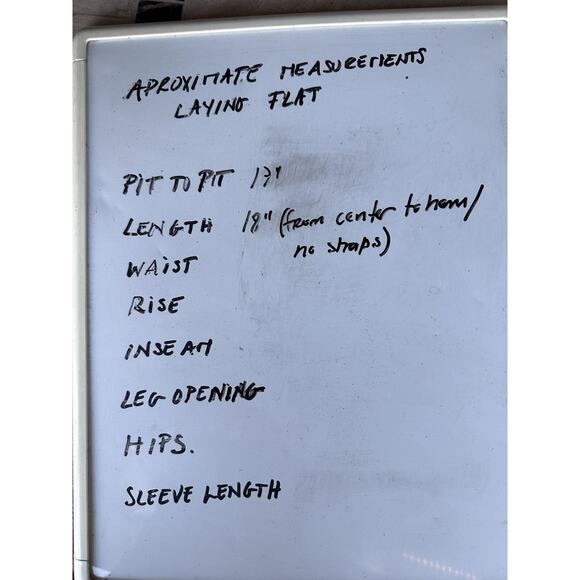 APROXIMATE MEASUREMENTS
LAYING FLAT
PIT TO PIT 17"
LENGTH 18" (from center to hem/
no straps)
WAIST
RISE
INSEAM
LEG OPENING
HIPS.
SLEEVE LENGTH